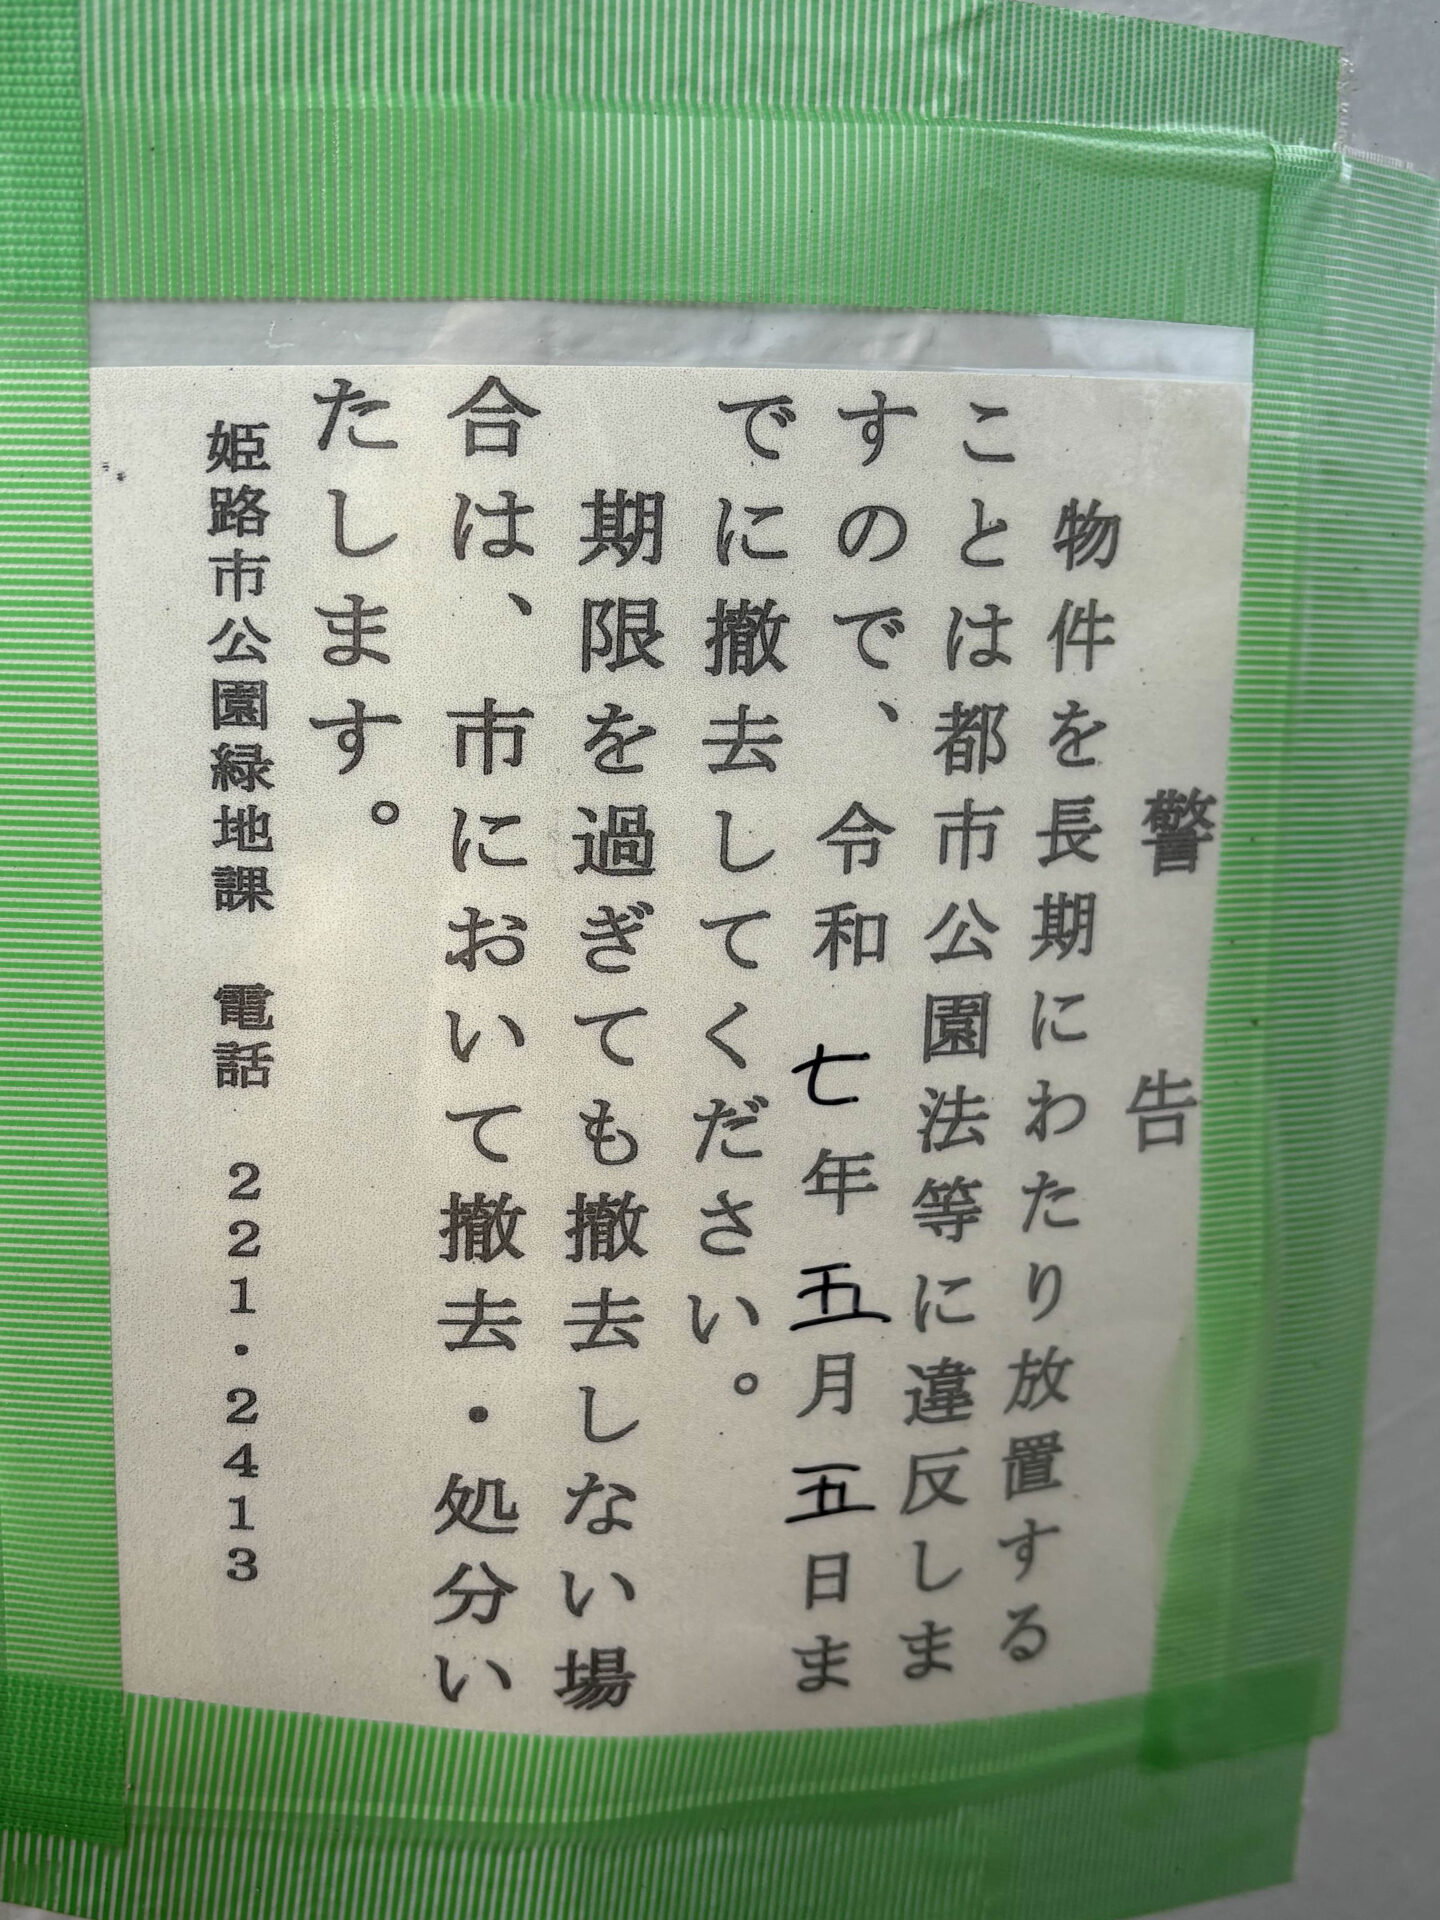 警告
物件を長期にわたり放置する
ことは都市公園法等に違反しま
すので、令和七年五月五日ま
でに撤去してください。
期限を過ぎても撤去しない場
合は、市において撤去・処分い
たします。
姫路市公園緑地課 電話 221・2413